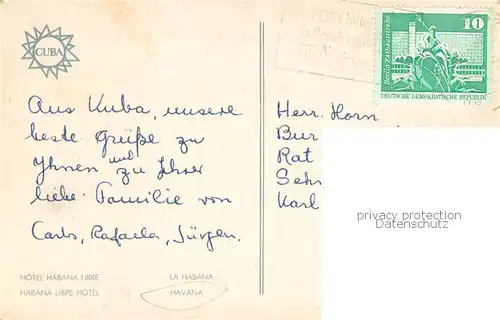 CUBA
10
Berlin-Rathausstraße
DEUTSCHE DEMOKRATISCHE REPUBLIK
Aus Kuba, unsere
beste Grüße zu
Ihnen und zu Ihrer
liebe Familie von
Carlos, Rafaela, Jürgen.
Herr. Horn
Bur
Rat
Sehr
Karl
privacy protection
Datenschutz
HOTEL HABANA LIBRE
LA HABANA
HABANA LIBRE HOTEL
HAVANA